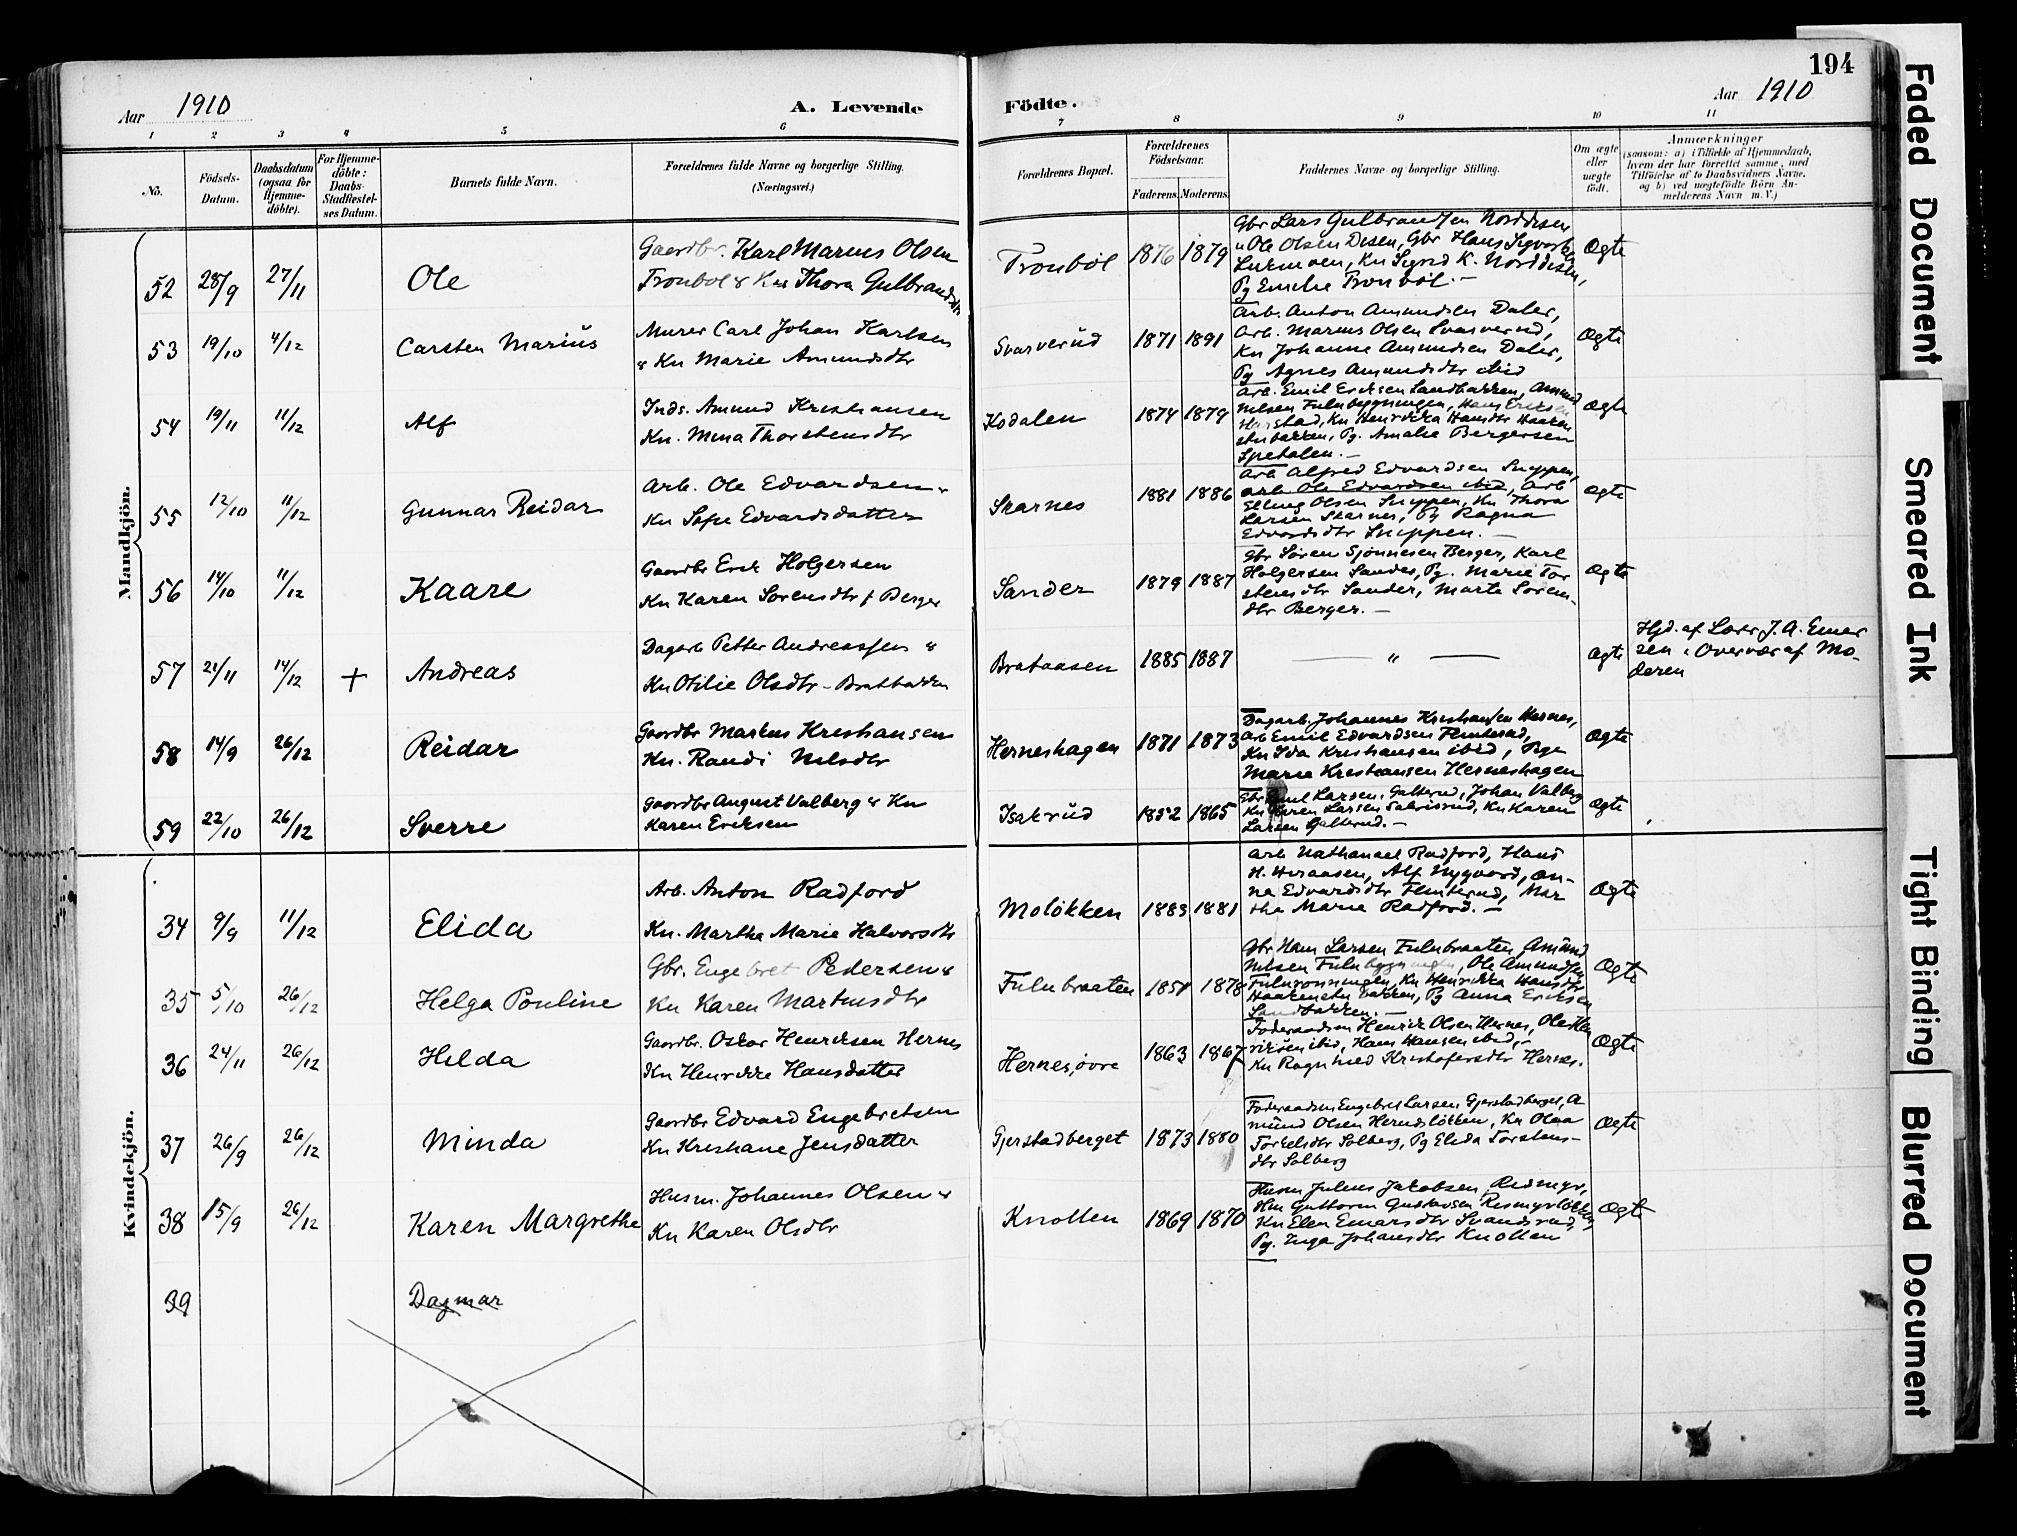 194
Aar 1910
A. Levende Födte.
Aar 1910
1 2 3 4 5 6 7 8 9 10 11
No.
Födsels-Datum.
Daabsdatum (ogsaa for Hjemme-döbte).
For Hjemme-döbte: Daabs-Stadfæstel-ses Datum.
Barnets fulde Navn.
Forældrenes fulde Navne og borgerlige Stilling. (Næringsvei.)
Forældrenes Bopæl.
Forældrenes Födselsaar.
Faderens. Moderens.
Faddernes Navne og borgerlige Stilling.
Om ægte eller uægte født.
Anmærkninger
(saasom: a) i Tilfælde af Hjemmedaab,
hvem der har forrettet samme, med
Tilföielse af to Daabsvidners Navne,
og b) ved uægtefödte Börn An-
melderens Navn m. V.)
Mandkjön.
52 28/9 27/11 Ole
Gaardbr. Karl Marius Olsen
Tronbøl & Kne Thora Gulbrandsdtr
Tronböl 1876 1879
Gbr Lars Gulbrandsen Norddisen
" Ole Olsen Disen, Gbr Hans Sigvartsen
Kn Sigrid K. Norddisen,
Pg Emilie Tronböl. –
Ægte
53 19/10 4/12 Carsten Marius
Murer Carl Johan Karlsen
& Kn Marie Amundsdtr
Svarverud 1871 1891
Arb. Anton Amundsen Daler,
Arb. Marius Olsen Svarverud,
Kn Johanne Amundsen Daler,
Pg Agnes Amundsdtr ibid
Ægte
54 19/11 11/12 Alf
Inds. Amund Kristiansen
Kn. Mina Thorstensdtr
Kodalen 1874 1879
Arb. Emil Eriksen Sandbakken, Amund
Nilsen Fulubygningen, Hans Eriksen
Harstad, Kn Henrikka Hansdtr Haaken
stubakken, Pg. Amalie Bergersen
Spetalen. –
Ægte
55 12/10 11/12 Gunnar Reidar
Arb. Ole Edvardsen &
Kn Sofie Edvardsdatter
Skarnes 1881 1886
Arb Alfred Edvardsen Snippen,
Arb Ole Edvardsen ibid, Arb
Elling Olsen Snippen, Kn Thora
Larsen Skarnes, Pg Ragna
Edvardsdtr Snippen. –
Ægte
56 14/10 11/12 Kaare
Gaardbr Erik Holgersen
Kn Karen Sørensdtr f Berger
Sander 1879 1887
Gbr Søren Sjønnesen Berger, Karl
Holgersen Sander, Pg. Marie Tor
stensdtr Sander, Marte Søren-
dtr Berger. –
Ægte
57 21/11 14/12 + Andreas
Dagarb Petter Andreassen &
Kn Otilie Olsdtr – Bratbakken
Brataasen 1885 1887
— " —
Ægte
Hjd. af Lærer J. A. Emer
sen i Overvær af Mo-
deren
58 14/9 26/12 Reidar
Gaardbr Markus Kristiansen
Kn. Randi Nilsdtr
Herneshagen 1871 1873
Dagarb. Johannes Kristiansen Hernes,
Arb Emil Edvardsen Flinterud,
Kn Ida Kristiansen ibid, Pge
Marie Kristiansen Herneshagen
Ægte
59 22/10 26/12 Sverre
Gaardbr August Valberg & Kn
Karen Eriksen
Isakrud 1852 1865
Gbr Emil Larsen, Galterud, Johan Valberg
Kn Karen Larsen Sakrisrud, Kn Karen
Larsen Galterud. –
Ægte
Kvindekjön.
34 9/9 11/12 Elida
Arb. Anton Radford
Kn. Martha Marie Halvorsdtr
Molökken 1883 1881
Arb Nathanael Radford, Hans
H. Heraasen, Alf Nygaard, An-
na Edvardsdtr Flinterud, Mar
tha Marie Radford. –
Ægte
35 5/10 26/12 Helga Pouline
Gbr. Engebret Pedersen &
Kn Karen Martinsdtr
Fulubraaten 1851 1878
Gbr Hans Larsen Fulubraaten, Amund
Nilsen Fulubygningen, Ole Amundsen
Fulurønningen, Kn Henrikka Hansdtr
Haakenstubakken, Pg Anna Eriksen
Sandbakken. –
Ægte
36 24/11 26/12 Hilda
Gaardbr. Oskar Henriksen Hernes
Kn Henrikke Hansdatter
Hernes, øvre 1863 1867
Föderaadsm Henrik Olsen Hernes, Ole Hen
riksen ibid, Hans Hansen ibid, –
Kn Ragnhild Kristofersdtr Hernes.
Ægte
37 26/9 26/12 Minda
Gaardbr Edvard Engebretsen
Kn Kristiane Jensdatter
Gjerstadberget 1873 1880
Föderaadsm Engebret Larsen Gjerstadberget, A
mund Olsen Herneslökken, Kn Olea
Torkelsdtr Solberg, Pg Elida Torstens-
dtr Solberg
Ægte
38 15/9 26/12 Karen Margrethe
Husm. Johannes Olsen &
Kn Karen Olsdtr
Knollen 1869 1870
Husm Julius Jakobsen, Resmyr,
Hm Guttorm Gustavsen Resmyrløkken,
Kn Elen Einarsdtr Svandsrud,
Pg. Inga Johansdtr Knollen
Ægte
39 Dagmar
Faded Document
Smeared Ink
Tight Binding
Blurred Document